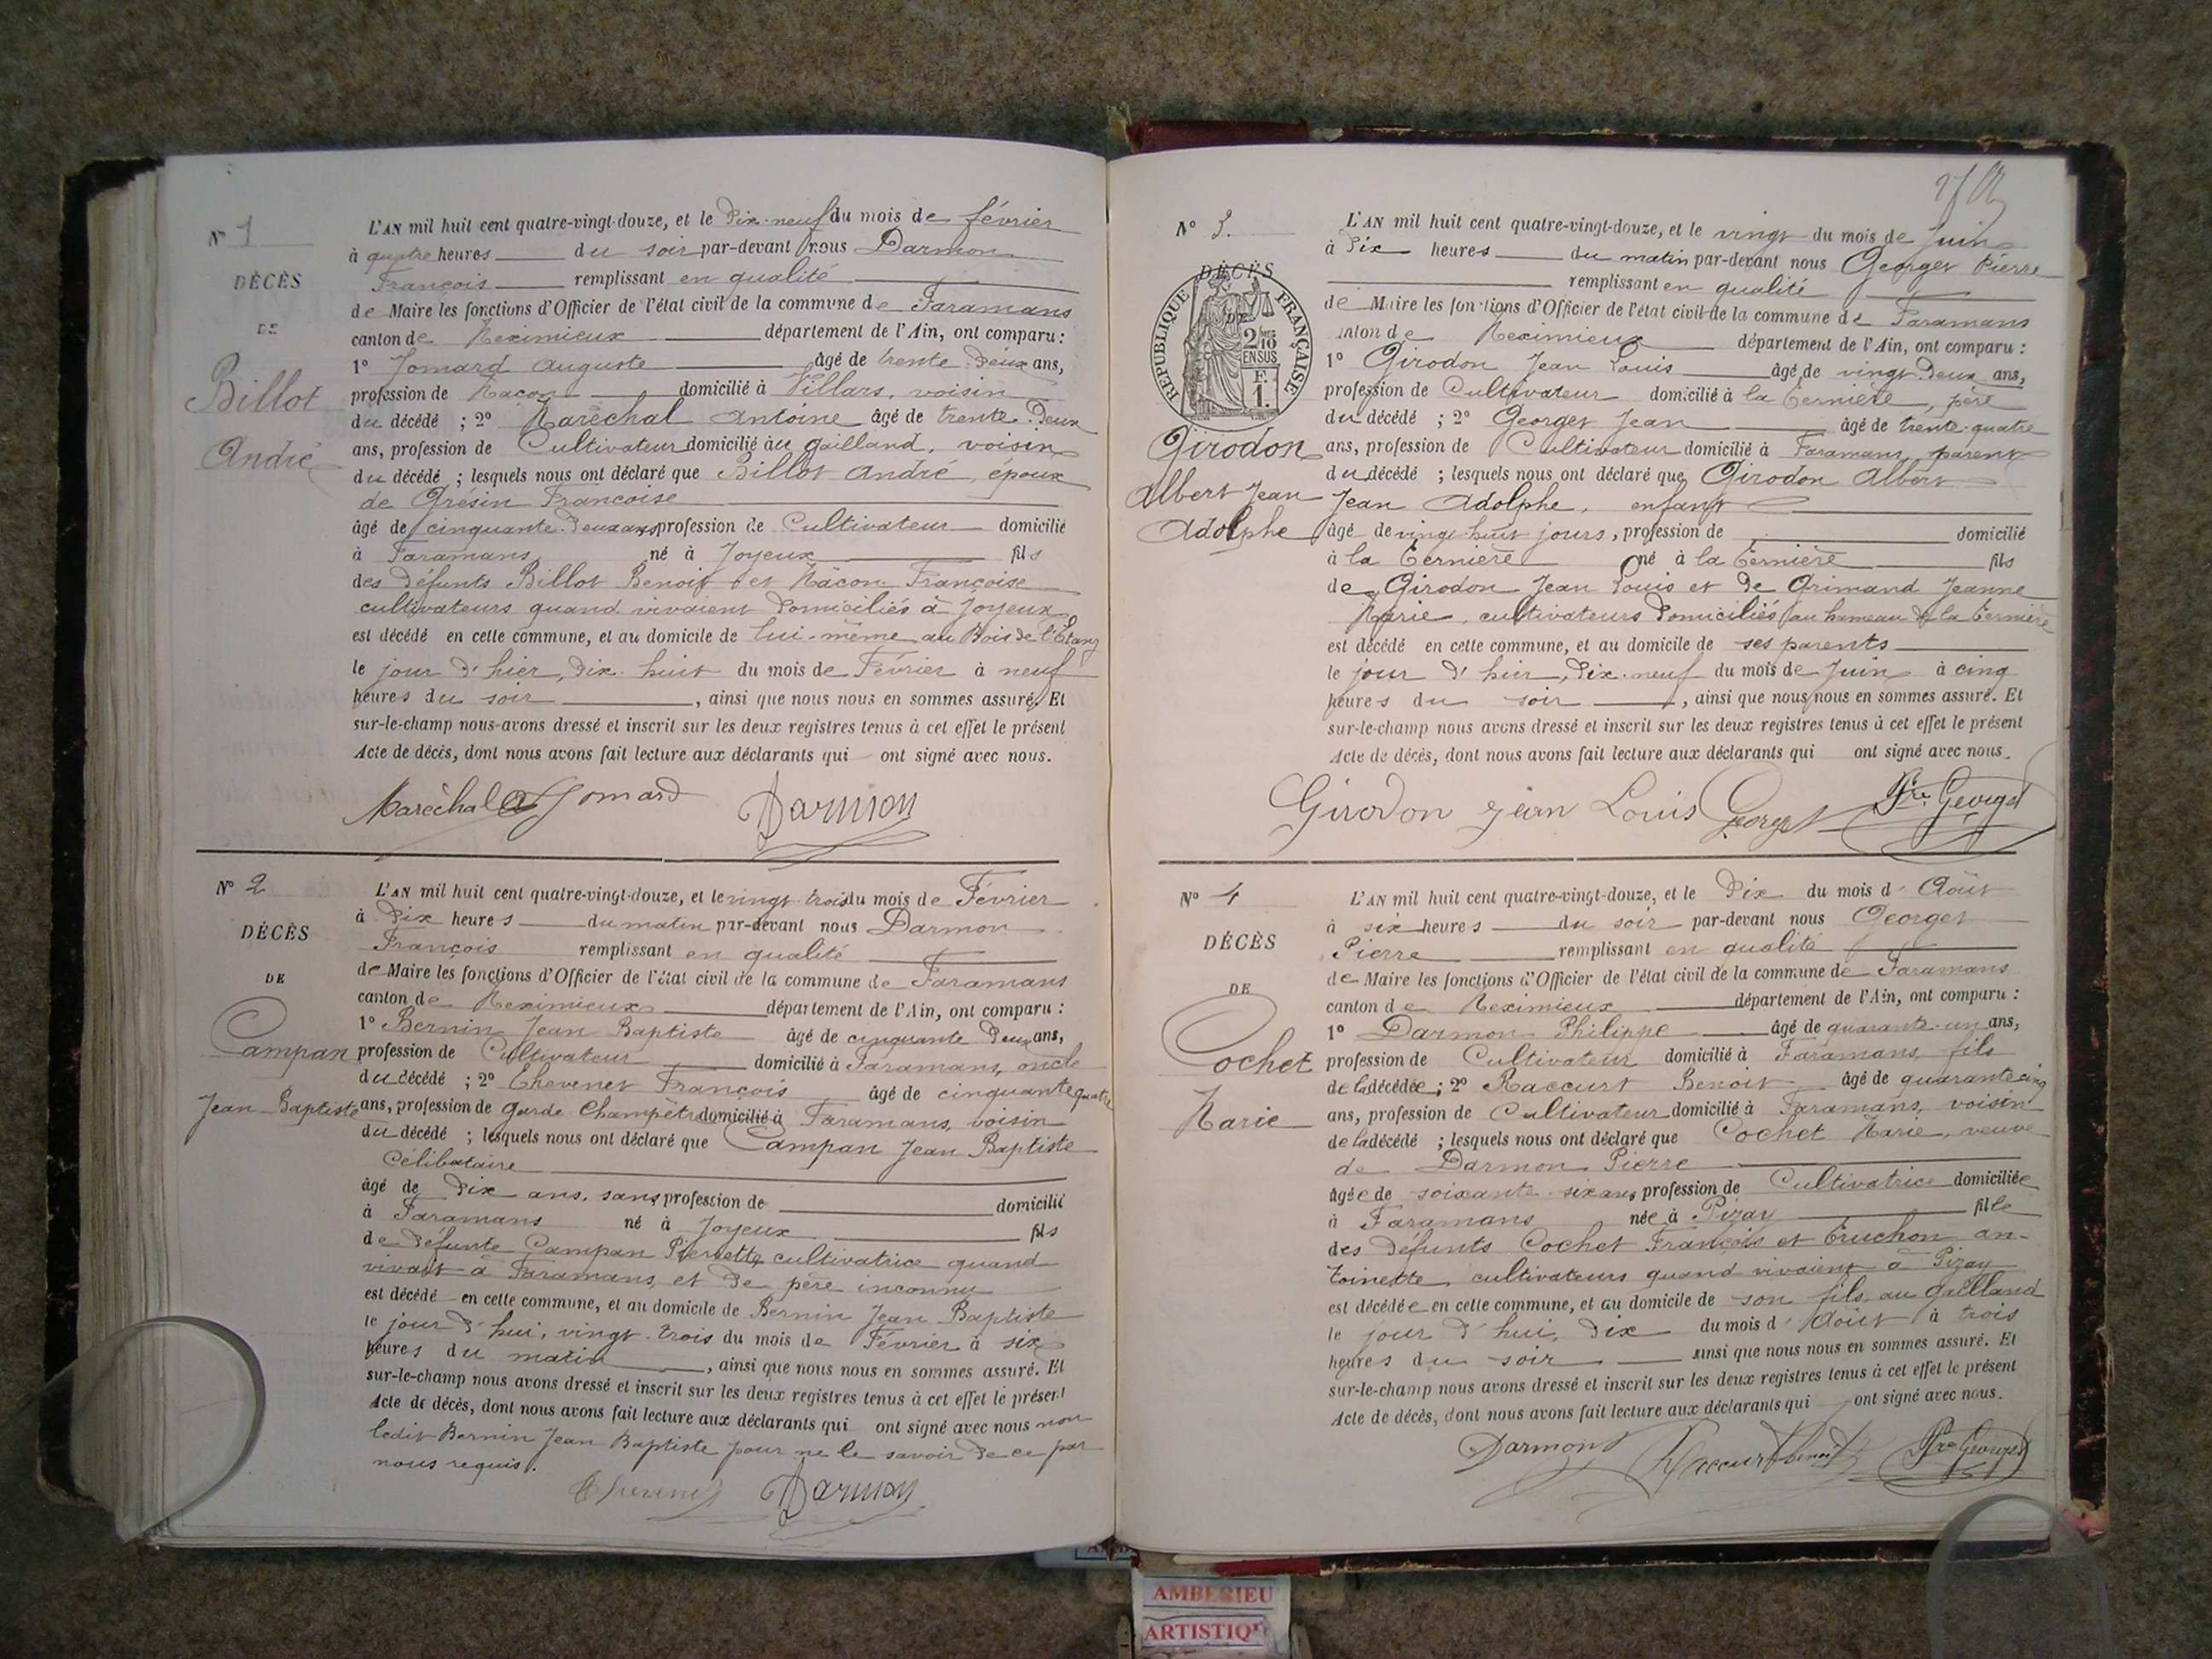 N° 1
DÉCÈS
DE
Billot
André
L'AN mil huit cent quatre-vingt-douze, et le Dix-neuf du mois de février
à quatre heures du soir par-devant nous Darmon
François remplissant en qualité
de Maire les fonctions d'Officier de l'état civil de la commune de Faramans
canton de Meximieux département de l'Ain, ont comparu :
1° Jomard Auguste âgé de trente-Deux ans,
profession de Maçon domicilié à Villars, voisin
du décédé ; 2° Maréchal Antoine âgé de trente-Deux
ans, profession de Cultivateur domicilié au Gailland, voisin
du décédé ; lesquels nous ont déclaré que Billot André, époux
de Grésin Françoise
âgé de cinquante-Deux ans profession de Cultivateur domicilié
à Faramans né à Joyeux fils
des Défunts Billot Benoit et Mâcon Françoise
cultivateurs quand vivaient Domiciliés à Joyeux
est décédé en cette commune, et au domicile de lui-même au Bois de l'Étang
le jour d'hier, Dix-huit du mois de Février à neuf
heures du soir , ainsi que nous nous en sommes assuré. Et
sur-le-champ nous avons dressé et inscrit sur les deux registres tenus à cet effet le présent
Acte de décès, dont nous avons fait lecture aux déclarants qui ont signé avec nous.
Maréchal A Jomard Darmon
N° 2
DÉCÈS
DE
Campan
Jean-Baptiste
L'AN mil huit cent quatre-vingt-douze, et le vingt-trois du mois de Février
à Dix heures du matin par-devant nous Darmon
François remplissant en qualité
de Maire les fonctions d'Officier de l'état civil de la commune de Faramans
canton de Meximieux département de l'Ain, ont comparu :
1° Bernin Jean Baptiste âgé de cinquante Deux ans,
profession de Cultivateur domicilié à Faramans, oncle
du décédé ; 2° Chevenet François âgé de cinquante quatre
ans, profession de Garde Champêtre domicilié à Faramans, voisin
du décédé ; lesquels nous ont déclaré que Campan Jean Baptiste
Célibataire
âgé de Dix ans, sans profession de domicilié
à Faramans né à Joyeux fils
de Défunte Campan Pierrette cultivatrice quand
vivait à Faramans, et de père inconnu
est décédé en cette commune, et au domicile de Bernin Jean Baptiste
le jour d'hui, vingt-trois du mois de Février à six
heures du matin , ainsi que nous nous en sommes assuré. Et
sur-le-champ nous avons dressé et inscrit sur les deux registres tenus à cet effet le présent
Acte de décès, dont nous avons fait lecture aux déclarants qui ont signé avec nous non
ledit Bernin Jean Baptiste pour ne le savoir de ce par
nous requis.
Chevenet Darmon
N° 3.
DÉCÈS
DE
RÉPUBLIQUE FRANÇAISE
2/10
EN SUS
F.
1.
Girodon
Albert Jean
Adolphe
L'AN mil huit cent quatre-vingt-douze, et le vingt du mois de Juin
à Dix heures du matin par-devant nous Georget Pierre
remplissant en qualité
de Maire les fonctions d'Officier de l'état civil de la commune de Faramans
canton de Meximieux département de l'Ain, ont comparu :
1° Girodon Jean Louis âgé de vingt-Deux ans,
profession de Cultivateur domicilié à la Cernière, père
du décédé ; 2° Georget Jean âgé de trente-quatre
ans, profession de Cultivateur domicilié à Faramans, parent
du décédé ; lesquels nous ont déclaré que Girodon Albert
Jean Adolphe, enfant
âgé de vingt-huit jours, profession de domicilié
à la Cernière né à la Cernière fils
de Girodon Jean Louis et de Grimand Jeanne
Marie, cultivateurs Domiciliés au hameau de la Cernière
est décédé en cette commune, et au domicile de ses parents
le jour d'hier, Dix-neuf du mois de Juin à cinq
heures du soir , ainsi que nous nous en sommes assuré. Et
sur-le-champ nous avons dressé et inscrit sur les deux registres tenus à cet effet le présent
Acte de décès, dont nous avons fait lecture aux déclarants qui ont signé avec nous.
Girodon jean Louis Georget Pre Georget
N° 4
DÉCÈS
DE
Cochet
Marie
L'AN mil huit cent quatre-vingt-douze, et le Dix du mois d'Août
à six heures du soir par-devant nous Georget
Pierre remplissant en qualité
de Maire les fonctions d'Officier de l'état civil de la commune de Faramans
canton de Meximieux département de l'Ain, ont comparu :
1° Darmon Philippe âgé de quarante-un ans,
profession de Cultivateur domicilié à Faramans, fils
de la décédée ; 2° Raccurt Benoit âgé de quarante cinq
ans, profession de Cultivateur domicilié à Faramans, voisin
de la décédé ; lesquels nous ont déclaré que Cochet Marie, veuve
de Darmon Pierre
âgée de soixante-six ans, profession de Cultivatrice domiciliée
à Faramans née à Pizay fille
des Défunts Cochet François et Truchon An-
toinette cultivateurs quand vivaient à Pizay
est décédée en cette commune, et au domicile de son fils au Gailland
le jour d'hui, Dix du mois d'Août à trois
heures du soir ainsi que nous nous en sommes assuré. Et
sur-le-champ nous avons dressé et inscrit sur les deux registres tenus à cet effet le présent
Acte de décès, dont nous avons fait lecture aux déclarants qui ont signé avec nous.
Darmon Raccurt benoit Pre Georget
AMBERIEU
ARTISTIQUE